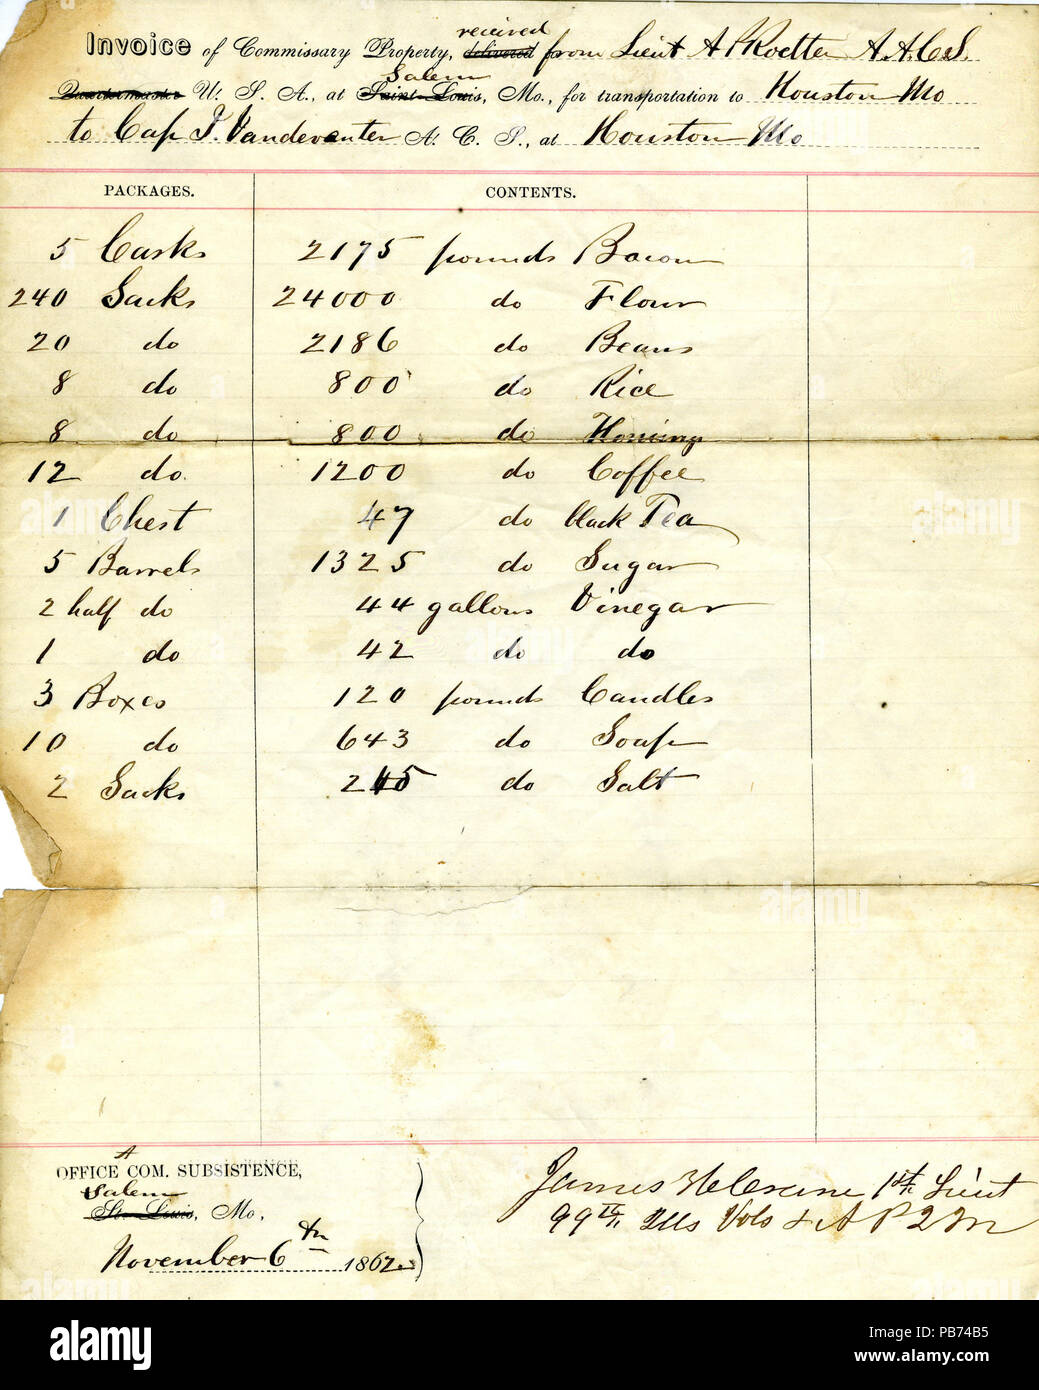 received
Invoice of Commissary Property, delivered from Lieut A P Roetter A.A.C.S.
Salem
Quartermaster U. S. A., at Saint Louis, Mo., for transportation to Houston Mo
to Cap J. Vandeventer A. C. S., at Houston Mo
PACKAGES. CONTENTS.
5 Casks 2175 pounds Bacon
240 Sacks 24000 do Flour
20 do 2186 do Beans
8 do 800 do Rice
8 do 800 do Hominy
12 do 1200 do Coffee
1 Chest 47 do black Tea
5 Barrels 1325 do Sugar
2 half do 44 gallons Vinegar
1 do 42 do do
3 Boxes 120 pounds Candles
10 do 643 do Soap
2 Sacks 245 do Salt
A
OFFICE COM. SUBSISTENCE,
Salem
St. Louis, Mo.,
November 6th 1862
James 1st Lieut
99th Ills Vols & A R Q M
alamy
Image ID: PB74B5
www.alamy.com